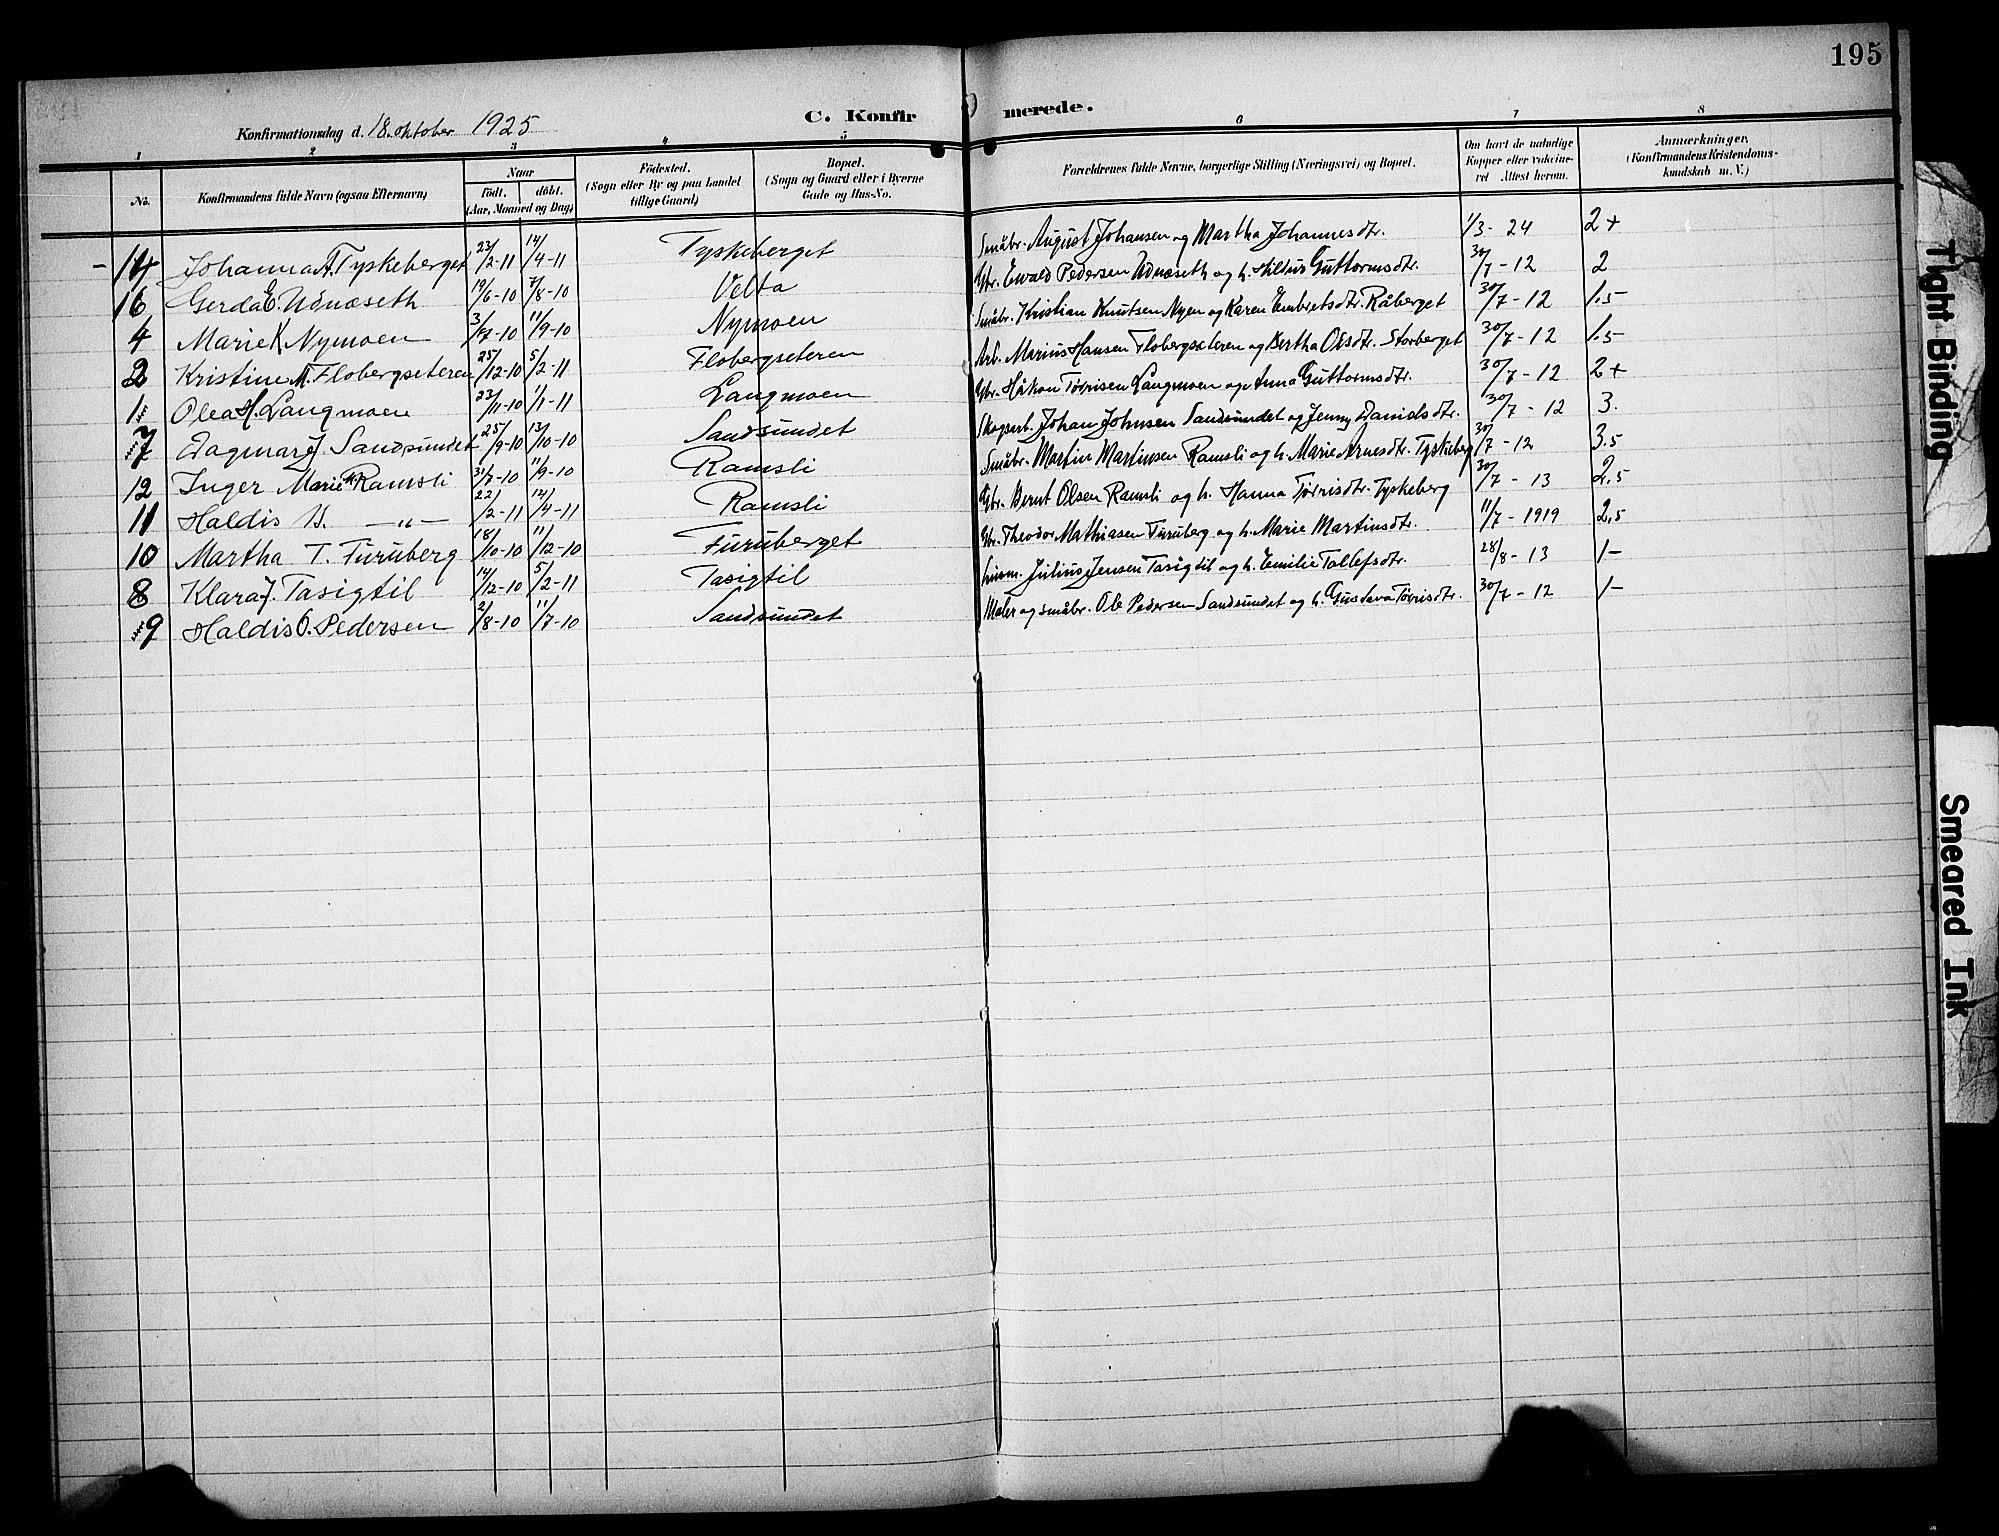 195
C. Konfirmerede.
Konfirmationsdag d. 18. oktober 1925
1 2 3 4 5 6 7 8
No. Konfirmandens fulde Navn (ogsaa Efternavn) Naar født. døbt. (Aar, Maaned og Dag) Fødested. (Sogn eller By og paa Landet tillige Gaard) Bopæl. (Sogn og Gaard eller i Byerne Gade og Hus-No. Forældrenes fulde Navne, borgerlige Stilling (Næringsvei) og Bopæl. Om havt de naturlige Kopper eller vaccineret Attest herom. Anmerkninger. (Konfirmandens Kristendomskundskab m. V.)
- 14 Johanna A. Tyskeberget 23/2-11 14/4-11 Tyskeberget Småbr. August Johansen og Martha Johannesdtr. 1/3-24 2+
16 Gerda E. Udnæseth 19/6-10 7/8-10 Velta Gbr. Ewald Pedersen Udnæseth og h. Guttormsdtr. 30/7-12 2
4 Marie K Nymoen 3/7-10 11/9-10 Nymoen Småbr. Kristian Knutsen Nyen og Karen Embretsdtr. Råberget 30/7-12 1.5
2 Kristine M. Flobergseteren 25/12-10 5/2-11 Flobergseteren Arb. Marius Hansen Flobergseteren og Bertha Olsdtr. Storberget 30/7-12 1.5
1 Olea H. Langmoen 23/11-10 1/1-11 Langmoen Gbr. Håkon Tørrisen Langmoen og Anna Guttormsdtr. 30/7-12 2+
7 Dagmar J. Sandsundet 25/9-10 13/10-10 Sandsundet Skogsarb. Johan Johnsen Sandsundet og Jenny Danielsdtr. 30/7-12 3.
12 Inger Marie M. Ramsli 31/7-10 11/9-10 Ramsli Småbr. Martin Martinsen Ramsli og h. Marie Arnesdtr. Tyskeberg 30/7-12 3.5
11 Haldis B. -"- 22/2-11 14/4-11 Ramsli Gbr. Bernt Olsen Ramsli og h. Hanna Tørrisdtr. Tyskeberg 30/7-13 2,5
10 Martha T. Furuberg 18/10-10 11/12-10 Furuberget Gbr. Theodor Mathiasen Furuberg og h. Marie Martinsdtr. 11/7-1919 2,5
8 Klara J. Tasigtil 14/12-10 5/2-11 Tasigtil Julius Jensen Tasigtil og h. Emilie Tollefsdtr. 28/8-13 1-
9 Haldis O. Pedersen 2/8-10 11/7-10 Sandsundet Maler og småbr. Ole Pedersen Sandsundet og h. Gustava Tørrisdtr. 30/7-12 1-
Tight Binding
Smeared Ink